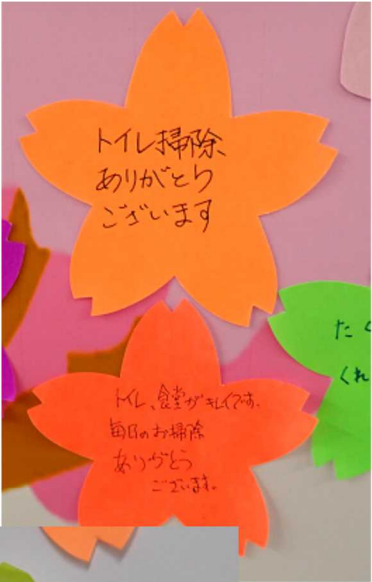 トイレ掃除
ありがとう
ございます
トイレ、食堂がキレイです。
毎日のお掃除
ありがとう
ございます。
た
くれ